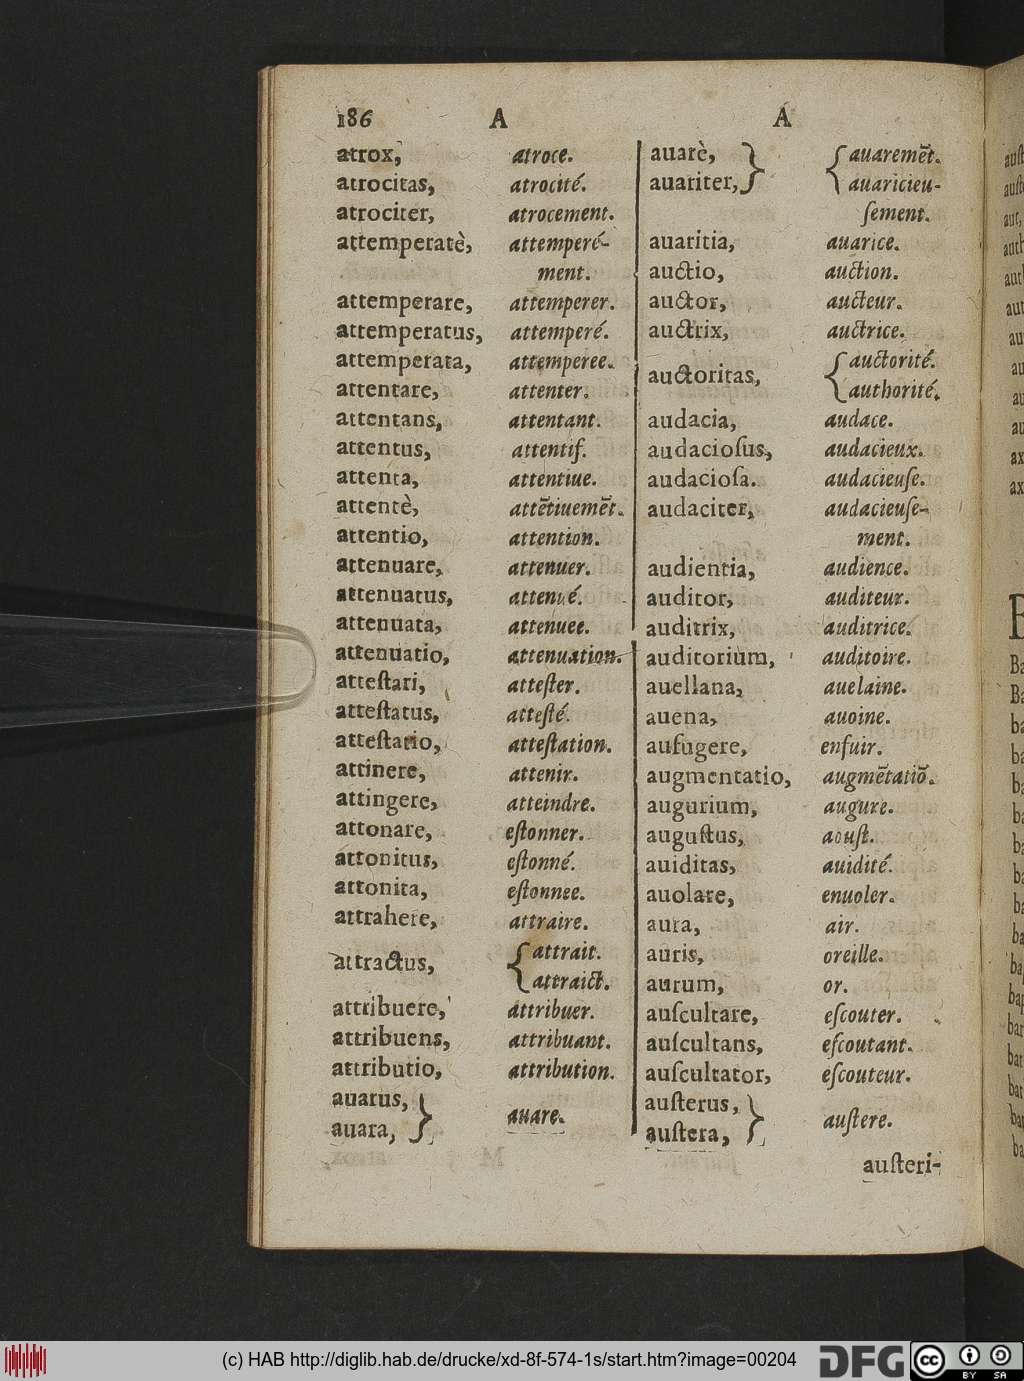 186 A A
atrox, atroce.
atrocitas, atrocité.
atrociter, atrocement.
attemperatè, attemperé-
ment.
attemperare, attemperer.
attemperatus, attemperé.
attemperata, attemperee.
attentare, attenter.
attentans, attentant.
attentus, attentif.
attenta, attentiue.
attentè, attẽtiuemẽt.
attentio, attention.
attenuare, attenuer.
attenuatus, attenué.
attenuata, attenuee.
attenuatio, attenuation.
atteſtari, atteſter.
atteſtatus, atteſté.
atteſtatio, atteſtation.
attinere, attenir.
attingere, atteindre.
attonare, eſtonner.
attonitus, eſtonné.
attonita, eſtonnee.
attrahere, attraire.
attractus, { attrait.
attraict.
attribuere, attribuer.
attribuens, attribuant.
attributio, attribution.
auarus, }
auara, auare.
auarè, } { auaremẽt.
auariter, auaricieu-
ſement.
auaritia, auarice.
auctio, auction.
auctor, aucteur.
auctrix, auctrice.
auctoritas, { auctorité.
authorité.
audacia, audace.
audacioſus, audacieux.
audacioſa. audacieuſe.
audaciter, audacieuſe-
ment.
audientia, audience.
auditor, auditeur.
auditrix, auditrice.
auditorium, auditoire.
auellana, auelaine.
auena, auoine.
aufugere, enfuir.
augmentatio, augmẽtatiõ.
augurium, augure.
auguſtus, aouſt.
auiditas, auidité.
auolare, enuoler.
aura, air.
auris, oreille.
aurum, or.
auſcultare, eſcouter.
auſcultans, eſcoutant.
auſcultator, eſcouteur.
auſterus, }
auſtera, auſtere.
auſteri-
(c) HAB http://diglib.hab.de/drucke/xd-8f-574-1s/start.htm?image=00204
DFG
cc BY SA